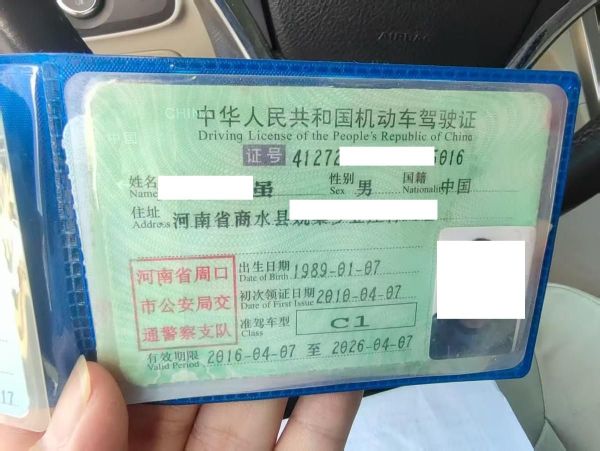 中华人民共和国机动车驾驶证
Driving License of the People's Republic of China
证号 41272 5016
姓名 性别 男 国籍 中国
Name Sex Nationality
住址 河南省商水县
Address
河南省周口
市公安局交
通警察支队
出生日期 1989-01-07
Date of Birth
初次领证日期 2010-04-07
Date of First Issue
准驾车型 C1
Class
有效期限 2016-04-07 至 2026-04-07
Valid Period
AIRBAG
17